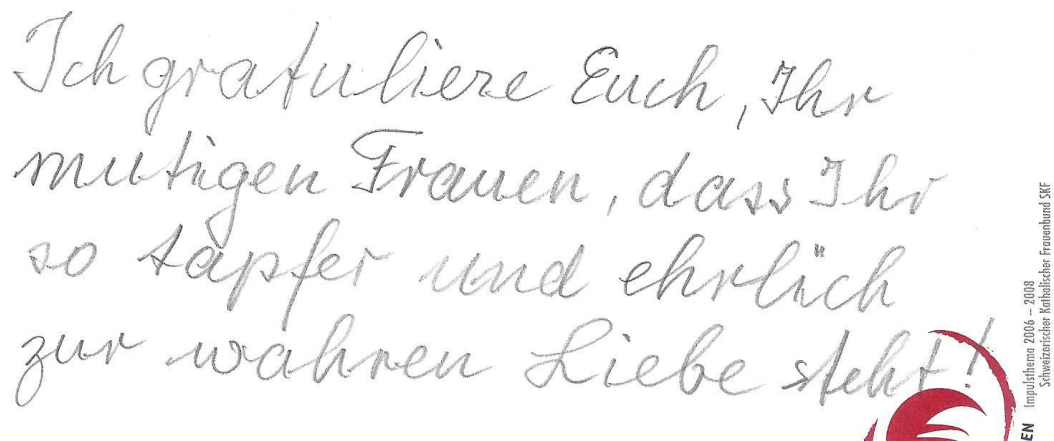 Ich gratuliere Euch, Ihr
mutigen Frauen, dass Ihr
so tapfer und ehrlich
zur wahren Liebe steht!
EN Impulsthema 2006 – 2008
Schweizerischer Katholischer Frauenbund SKF